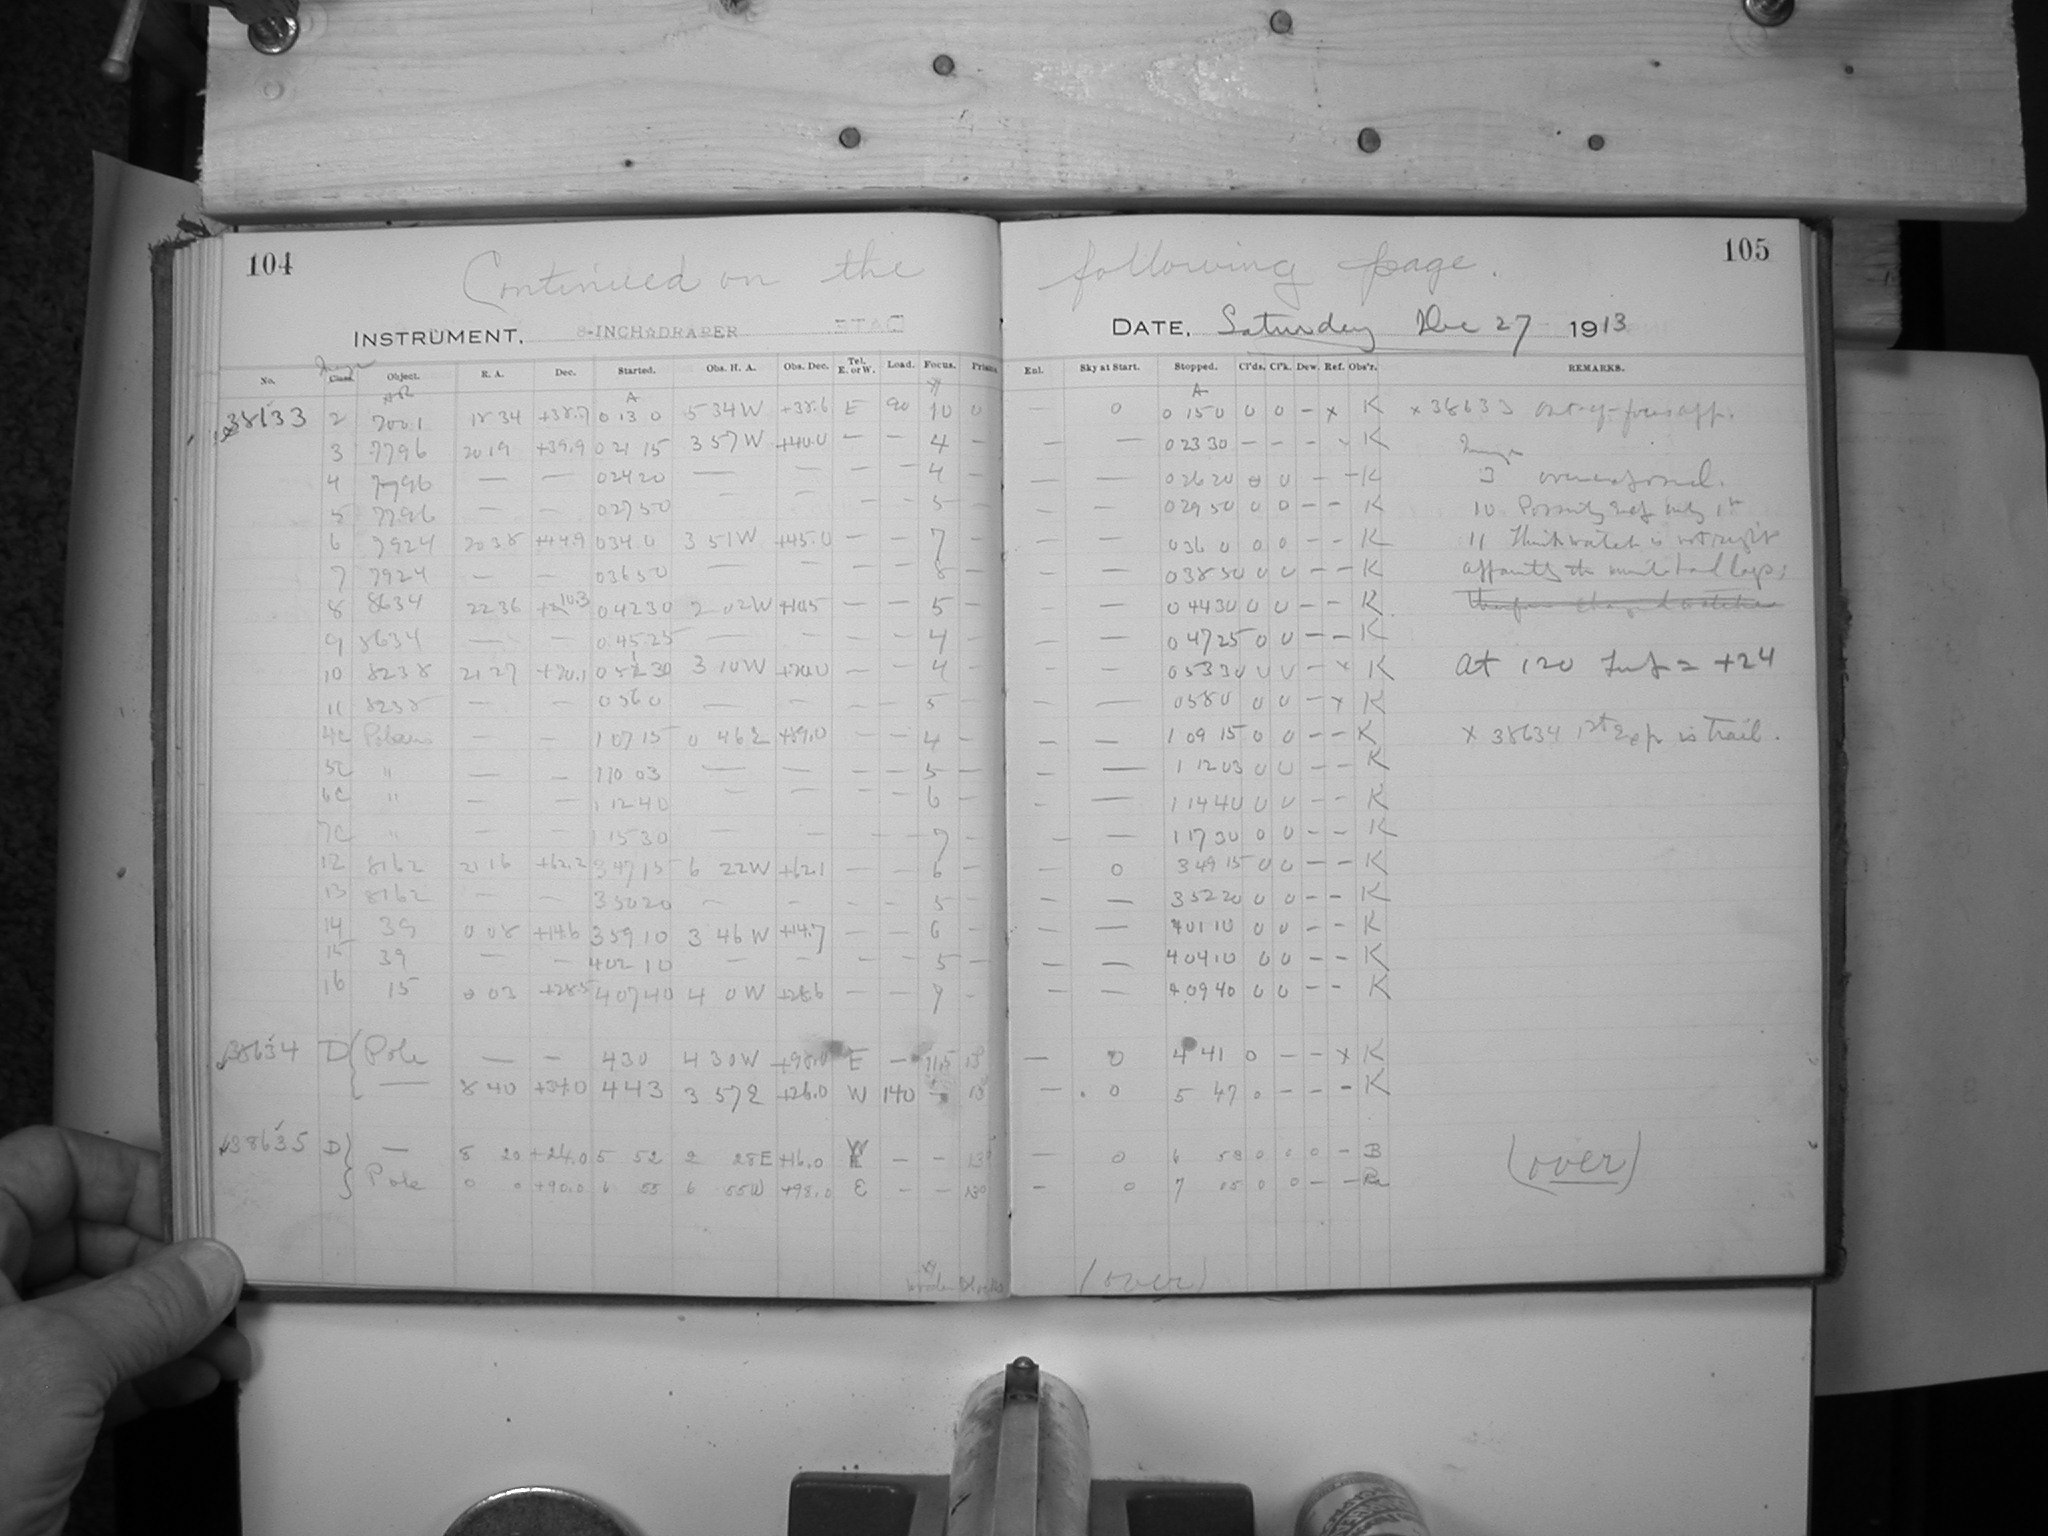 104
Continued on the following page.
105
INSTRUMENT. 8-INCH DRAPER
DATE. Saturday Dec 27 1913
No. Image Class. Object. R. A. Dec. Started. Obs. H. A. Obs. Dec. Tel. E. or W. Load. Focus. Prism. Enl. Sky at Start. Stopped. Cl'ds. Cl'k. Dew. Ref. Obs'r. REMARKS.
38633 2 7001 18 34 +38.7 0 13 0 5 34 W +38.6 E 90 10 0 — 0 0 15 0 0 0 – x K x 38633 out-of-focus app.
3 7796 20 19 +39.9 0 21 15 3 57 W +40.0 — — 4 — — 0 23 30 – – – K
Image
4 7796 — — 0 24 20 — — — — 4 — — — 0 26 20 0 0 – – K 3
5 7796 — — 0 27 50 — — — — 5 — — — 0 29 50 0 0 – – K 10
6 7924 20 38 +44.9 0 34 0 3 51 W +45.0 — — 7 — — — 0 36 0 0 0 – – K 11 Think watch is not right
7 7924 — — 0 36 50 — — — — 8 — — — 0 38 50 0 0 – – K
8 8634 22 36 +10.3 0 42 30 2 02 W +10.5 — — 5 — — — 0 44 30 0 0 – – K
9 8634 — — 0 45 25 — — — — 4 — — — 0 47 25 0 0 – – K
10 8238 21 27 +70.1 0 51 30 3 10 W +70.0 — — 4 — — — 0 53 30 0 0 – x K At 120 = +24
11 8238 — — 0 56 0 — — — — 5 — — — 0 58 0 0 0 – x K
4c Polaris — — 1 07 15 0 46 E +89.0 — — 4 — — — 1 09 15 0 0 – – K x 38634 1st Exp is trail.
5c " — — 1 10 03 — — — — 5 — — — 1 12 03 0 0 – – K
6c " — — 1 12 40 — — — — 6 — — — 1 14 40 0 0 – – K
7c " — — 1 15 30 — — — — 7 — — — 1 17 30 0 0 – – K
12 8162 21 16 +62.2 3 47 15 6 22 W +62.1 — — 6 — — 0 3 49 15 0 0 – – K
13 8162 — — 3 50 20 — — — — 5 — — — 3 52 20 0 0 – – K
14 39 0 08 +14.6 3 59 10 3 46 W +14.7 — — 6 — — — 4 01 10 0 0 – – K
15 39 — — 4 02 10 — — — — 5 — — — 4 04 10 0 0 – – K
16 15 0 03 +28.5 4 07 40 4 0 W +28.6 — — 7 — — — 4 09 40 0 0 – – K
38634 D Pole — — 4 30 4 30 W +98.0 E — 11.5 13° — 0 4 41 0 – – x K
— 8 40 +34.0 4 43 3 57 E +26.0 W 140 — 13° — 0 5 47 0 – – – K
38635 D — 8 20 +24.0 5 52 2 28 E +16.0 W — — 13° — 0 6 58 0 0 0 – B
Pole 0 0 +90.0 6 55 6 55 W +98.0 E — — 13° — 0 7 05 0 0 – –
(over)
(over)